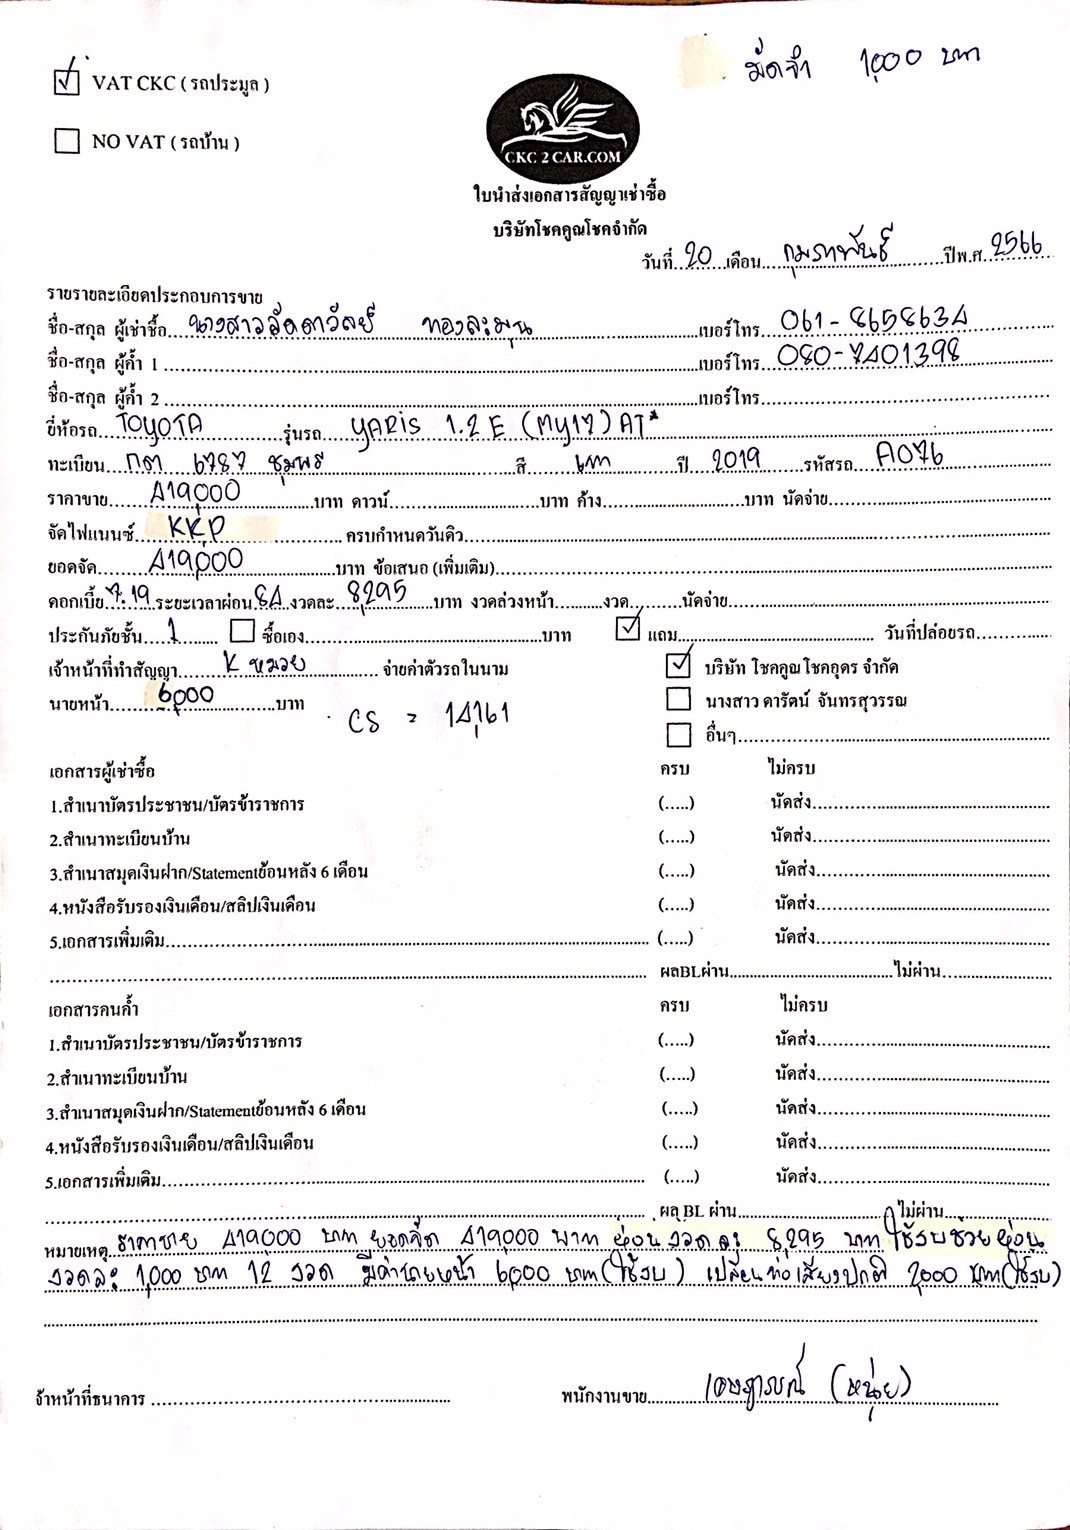 มัดจำ 1,000 บาท
VAT CKC ( รถประมูล )
NO VAT ( รถบ้าน )
CKC 2 CAR.COM
ใบนำส่งเอกสารสัญญาเช่าซื้อ
บริษัทโชคคูณโชคจำกัด
วันที่ 20 เดือน กุมภาพันธ์ ปีพ.ศ. 2566
รายรายละเอียดประกอบการขาย
ชื่อ-สกุล ผู้เช่าซื้อ นางสาวลัดดาวัลย์ ทองละมุน เบอร์โทร 061-8658634
ชื่อ-สกุล ผู้ค้ำ 1 เบอร์โทร 080-7401398
ชื่อ-สกุล ผู้ค้ำ 2 เบอร์โทร
ยี่ห้อรถ TOYOTA รุ่นรถ YARIS 1.2 E (MY17) AT*
ทะเบียน กต 6787 ชุมพร สี เทา ปี 2019 รหัสรถ A076
ราคาขาย 419,000 บาท ดาวน์ บาท ค้าง บาท นัดจ่าย
จัดไฟแนนซ์ KKP ครบกำหนดวันคิว
ยอดจัด 419,000 บาท ข้อเสนอ (เพิ่มเติม)
ดอกเบี้ย 7.19 ระยะเวลาผ่อน 84 งวดละ 8,295 บาท งวดล่วงหน้า งวด นัดจ่าย
ประกันภัยชั้น 1 ซื้อเอง บาท แถม วันที่ปล่อยรถ
เจ้าหน้าที่ทำสัญญา K หมวย จ่ายค่าตัวรถในนาม บริษัท โชคคูณโชคอุดร จำกัด
นายหน้า 6,000 บาท นางสาว ดารัตน์ จันทรสุวรรณ
CS = 14,161
อื่นๆ
เอกสารผู้เช่าซื้อ ครบ ไม่ครบ
1.สำเนาบัตรประชาชน/บัตรข้าราชการ (.....) นัดส่ง
2.สำเนาทะเบียนบ้าน (.....) นัดส่ง
3.สำเนาสมุดเงินฝาก/Statementย้อนหลัง 6 เดือน (.....) นัดส่ง
4.หนังสือรับรองเงินเดือน/สลิปเงินเดือน (.....) นัดส่ง
5.เอกสารเพิ่มเติม (.....) นัดส่ง
ผลBLผ่าน ไม่ผ่าน
เอกสารคนค้ำ ครบ ไม่ครบ
1.สำเนาบัตรประชาชน/บัตรข้าราชการ (.....) นัดส่ง
2.สำเนาทะเบียนบ้าน (.....) นัดส่ง
3.สำเนาสมุดเงินฝาก/Statementย้อนหลัง 6 เดือน (.....) นัดส่ง
4.หนังสือรับรองเงินเดือน/สลิปเงินเดือน (.....) นัดส่ง
5.เอกสารเพิ่มเติม (.....) นัดส่ง
ผล BL ผ่าน ไม่ผ่าน
หมายเหตุ ราคาขาย 419,000 บาท ยอดจัด 419,000 บาท ผ่อนงวดละ 8,295 บาท ใช้งบช่วยผ่อน
งวดละ 1,000 บาท 12 งวด มีค่านายหน้า 6,000 บาท (ใช้งบ) เปลี่ยนท่อเสียงปกติ 2,000 บาท (ใช้งบ)
จ้าหน้าที่ธนาคาร พนักงานขาย (หนุ่ย)